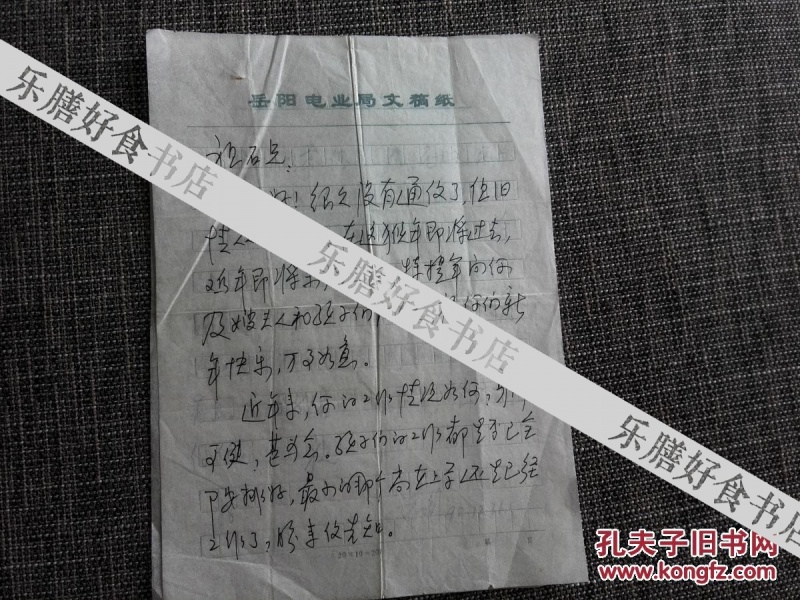 岳阳电业局文稿纸
石兄:
好!很久没有通信了,但旧
情 在这猴年即将过去,
鸡年即将来 特提笔向你
及嫂夫人和孩子们 你们新
年快乐,万事如意。
近年来,你的工作情况如何,身体
可健,甚念。孩子们的工作都是否已全
部安排好,最小的那个尚在上学还是已经
工作了,盼来信告知。
20×10=200
乐膳好食书店
乐膳好食书店
乐膳好食书店
孔夫子旧书网
www.kongfz.com